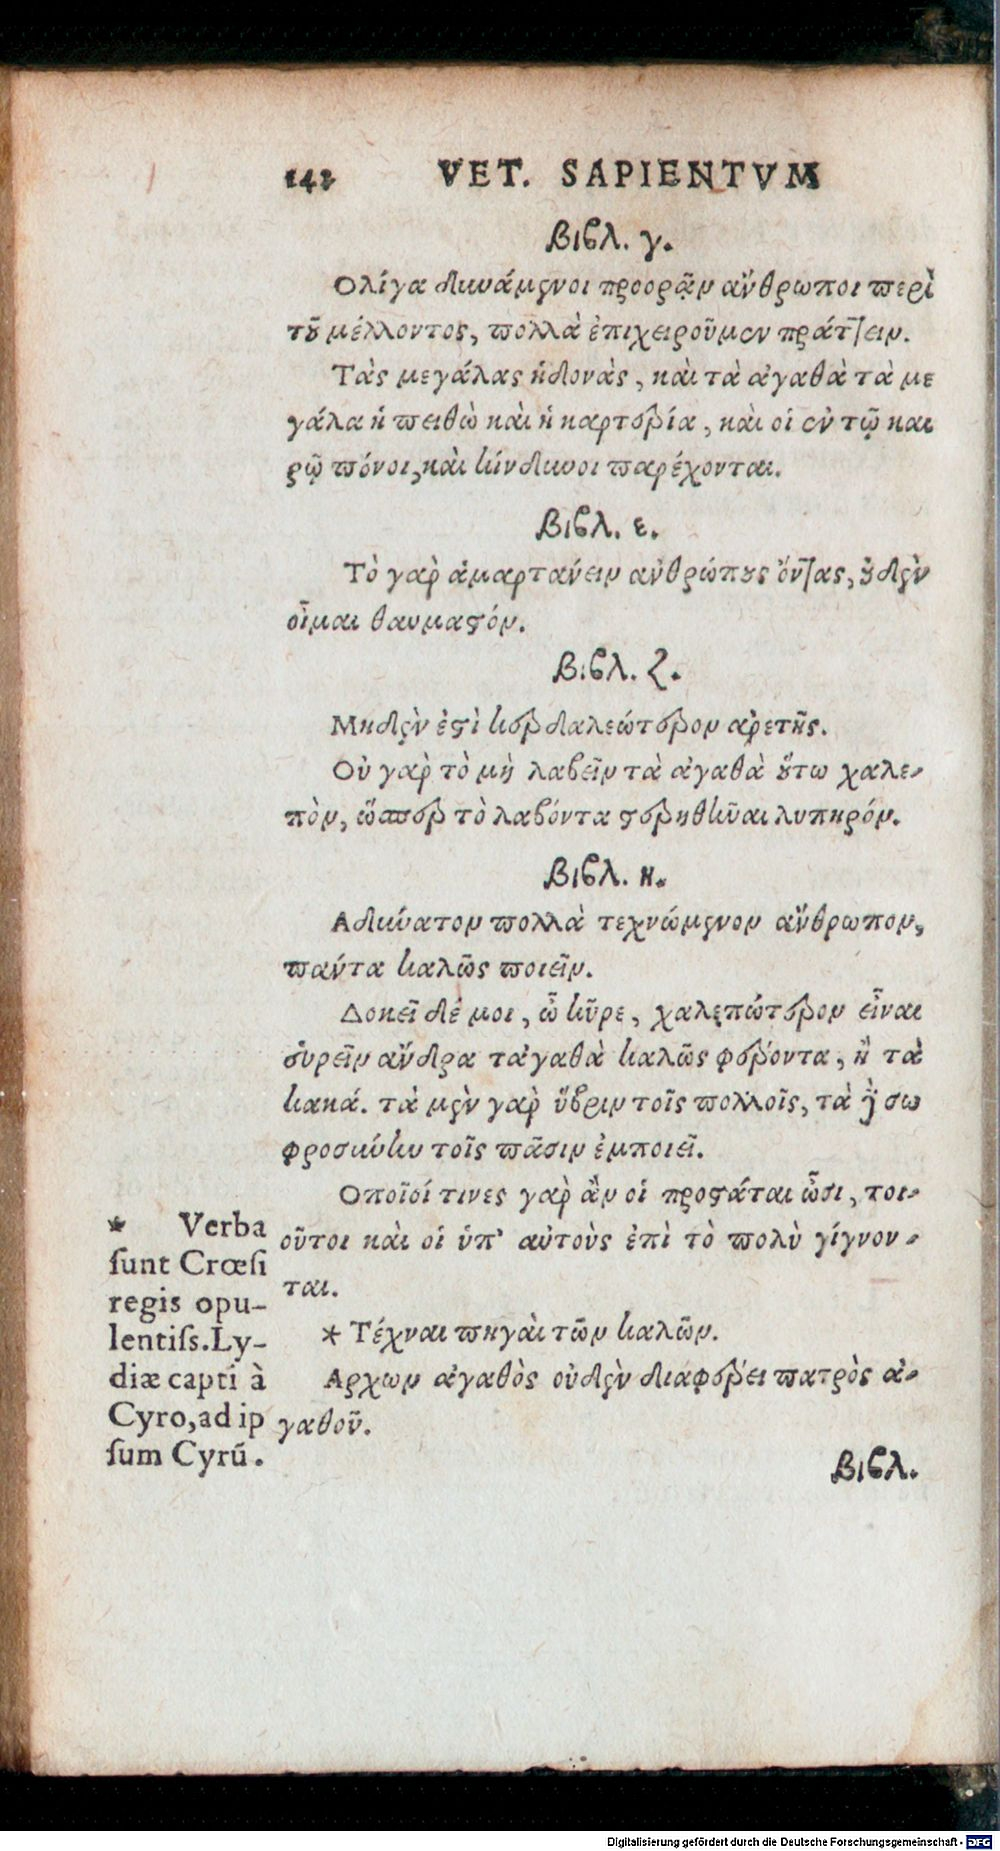 142 VET. SAPIENTVM
Βιβλ. γ.
Ολίγα δυνάμενοι προορᾷν ἄνθρωποι περὶ
τοῦ μέλλοντος, πολλὰ ἐπιχειροῦμεν πράττειν.
Τὰς μεγάλας ἡδονὰς, καὶ τὰ ἀγαθὰ τὰ με
γάλα ἡ πειθὼ καὶ ἡ καρτερία, καὶ οἱ ἐν τῷ και
ρῷ πόνοι, καὶ κίνδυνοι παρέχονται.
Βιβλ. ε.
Τὸ γὰρ ἁμαρτάνειν ἀνθρώπους ὄντας, οὐδὲν
οἶμαι θαυμαστόν.
Βιβλ. ζ.
Μηδὲν ἐστὶ κερδαλεώτερον ἀρετῆς.
Οὐ γὰρ τὸ μὴ λαβεῖν τὰ ἀγαθὰ οὕτω χαλε-
πὸν, ὥσπερ τὸ λαβόντα στερηθῆναι λυπηρόν.
Βιβλ. η.
Αδύνατον πολλὰ τεχνώμενον ἄνθρωπον,
πάντα καλῶς ποιεῖν.
Δοκεῖ δέ μοι, ὦ κῦρε, χαλεπώτερον εἶναι
εὑρεῖν ἄνδρα τἀγαθὰ καλῶς φέροντα, ἢ τὰ
κακά. τὰ μὲν γὰρ ὕβριν τοῖς πολλοῖς, τὰ δὲ σω
φροσύνην τοῖς πᾶσιν ἐμποιεῖ.
Οποῖοί τινες γὰρ ἂν οἱ προστάται ὦσι, τοι-
οῦτοι καὶ οἱ ὑπ' αὐτοὺς ἐπὶ τὸ πολὺ γίγνον-
ται.
* Τέχναι πηγαὶ τῶν καλῶν.
Αρχων ἀγαθὸς οὐδὲν διαφέρει πατρὸς ἀ-
γαθοῦ.
* Verba
sunt Crœsi
regis opu-
lentiss. Ly-
diæ capti à
Cyro, ad ip
sum Cyrũ.
Βιβλ.
Digitalisierung gefördert durch die Deutsche Forschungsgemeinschaft - DFG